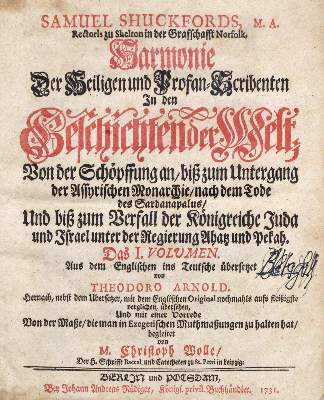 SAMUEL SHUCKFORDS, M. A.
Rectoris zu Skelton in der Graffschafft Norfolk,
Harmonie
Der Heiligen und Profan-Scribenten
In den
Geschichten der Welt,
Von der Schöpffung an, biß zum Untergang
der Assyrischen Monarchie, nach dem Tode
des Sardanapalus,
Und biß zum Verfall der Königreiche Juda
und Israel unter der Regierung Ahaz und Pekah.
Das I. VOLUMEN.
Aus dem Englischen ins Teutsche übersetzet
von
THEODORO ARNOLD.
Hernach, nebst dem Übersetzer, mit dem Englischen Original nochmahls aufs fleißigste
verglichen, übersehen,
Und mit einer Vorrede
Von der Maße, die man in Exegetischen Muthmaßungen zu halten hat,
begleitet
von
M. Christoph Wolle,
Der H. Schrifft Baccal. und Catecheten zu St. Petri in Leipzig.
BERLIN und POTSDAM,
Bey Johann Andreas Rüdiger, Königl. privil. Buchhändler, 1731.